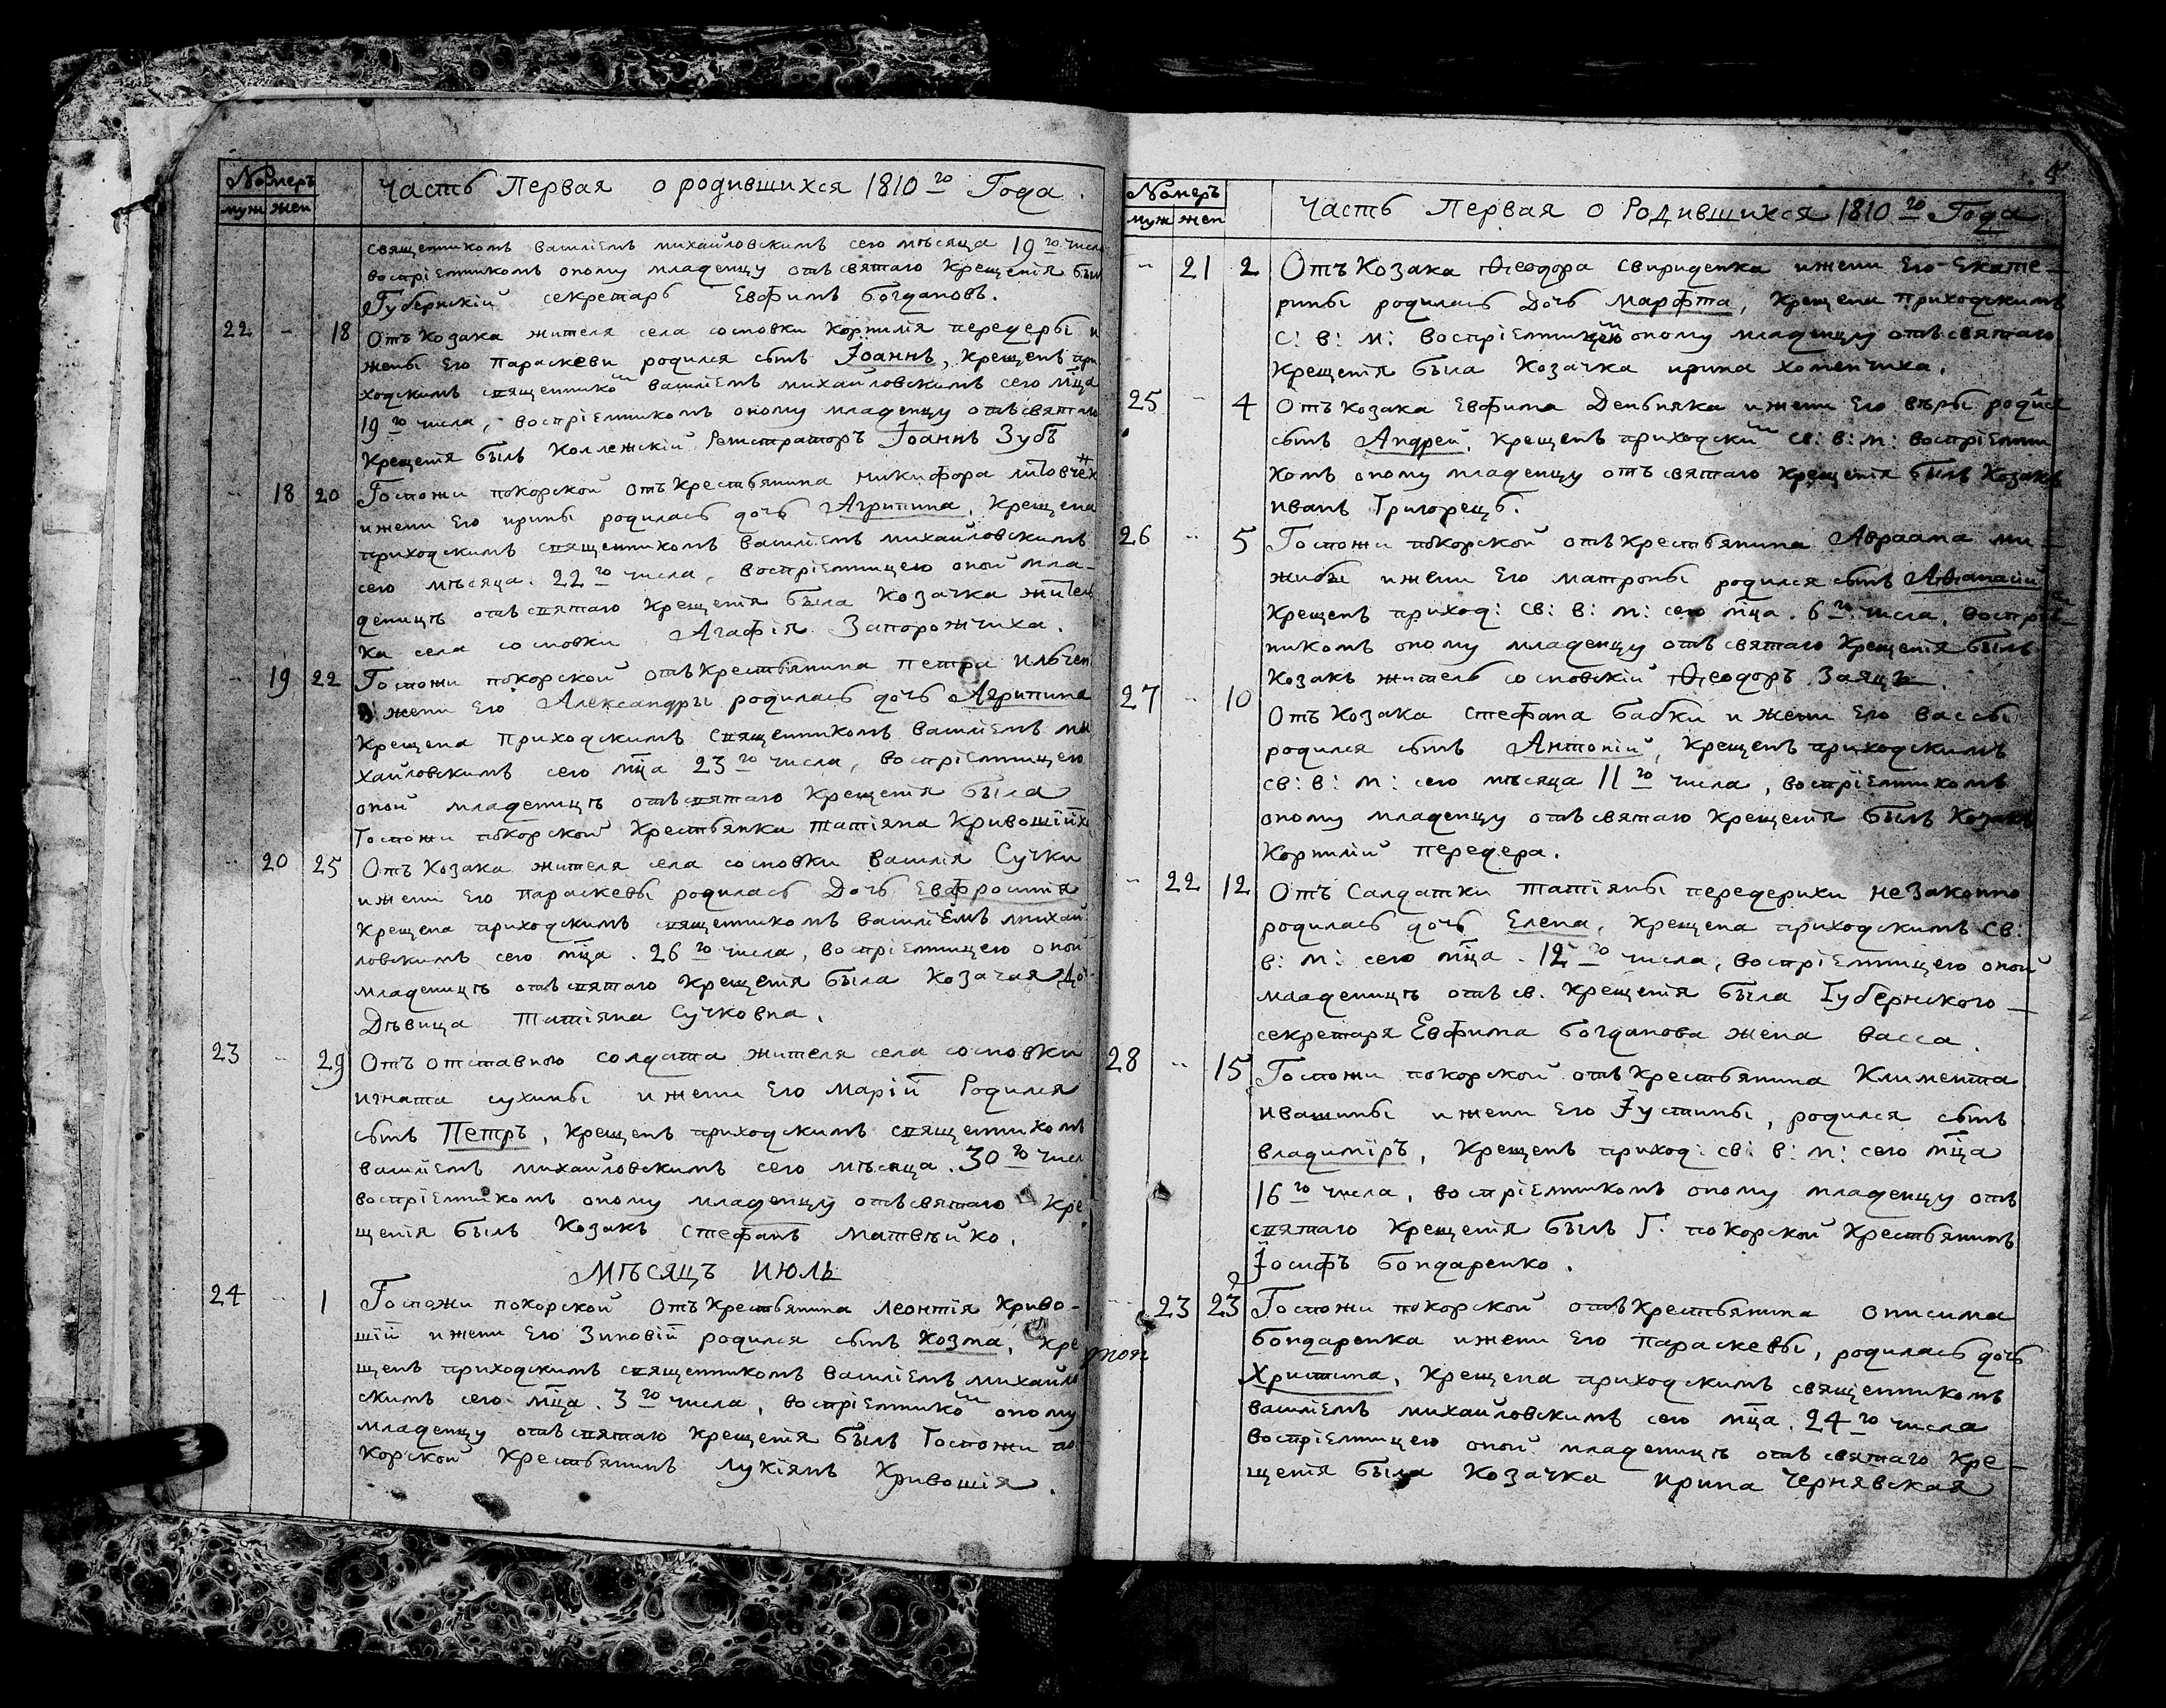 Номеръ
муж жен
Часть Первая о родившихся 1810го Года.
священникомъ василіемъ михайловскимъ сего мѣсяца 19го числа
воспріемникомъ оному младенцу отъ святаго Крещенія былъ
Губернскій секретаръ Евфимъ Богдановъ.
22 - 18 Отъ Козака жителя села сосновки Корнилія передеры и
жены Его Параскеви родился сынъ Іоаннъ, Крещенъ при
ходскимъ священнико василіемъ михайловскимъ сего мца
19го числа, воспріемникомъ оному младенцу отъ святаго
Крещенія былъ Коллежскій Регистраторъ Іоаннъ Зубъ
- 18 20 Госпожи покорской отъ Крестьянина никифора
и жени Его ирины родилась дочь Агрипина, Крещена
приходскимъ священникомъ василіемъ михайловскимъ
сего мѣсяца. 22го числа, воспріемницею оной мла-
деницѣ отъ святаго Крещенія была Козачка жител
ка села сосновки Агафія Запорожчиха.
- 19 22 Госпожи покорской отъ Крестьянина петра Ильчен
и жени Его Александры родилась дочь Агрипина
Крещена Приходскимъ священникомъ василіемъ ми
хайловскимъ сего мца 23го числа, воспріемницею
оной младеницѣ отъ святаго Крещенія была
Госпожи покорской Крестьянка татіяна Кривошіих
- 20 25 Отъ Козака жителя села сосновки василія Сучки
и жени Его параскевы родилась Дочь Евфросинія
Крещена приходскимъ священникомъ василіемъ михай
ловскимъ сего мца. 26го числа, воспріемницею оной
младеницѣ отъ святаго Крещенія была Козачая До
Дѣвица татіяна Сучковна.
23 - 29 Отъ отставного солдата жителя села сосновки
игната сухины и жени Его Маріи Родился
сынъ Петръ, Крещенъ приходскимъ священникомъ
василіемъ михайловскимъ сего мѣсяца. 30го числ
воспріемникомъ оному младенцу отъ святаго Кре
щенія былъ Козакъ стефанъ матвѣйко.
Мѣсяцъ июль
24 - 1 Госпожи покорской Отъ Крестьянина леонтія Криво-
шіи и жени Его Зиновіи родился сынъ Козма, Кре
щенъ приходскимъ священникомъ василіемъ михайло
скимъ сего мца. 3го числа, воспріемнико оному
младенцу отъ святаго Крещенія былъ Госпожи по
Корской Крестьянинъ лукіянъ Кривошія.
5
Номеръ
муж жен
Часть Первая о Родившихся 1810го Года
- 21 2 Отъ Козака Ѳеодора свириденка и жени Его Екате-
рины родилась Дочь Марфта, Крещена Приходскимъ
с: в: м: воспріемницею оному младенцу отъ святаго
Крещенія была Козачка ирина хоменчиха.
25 - 4 Отъ козака Евфима Деньняка и жени Его вѣры родися
сынъ Андрей, Крещенъ приходски св: в: м: воспріемни
комъ оному младенцу отъ святаго крещенія былъ Козакъ
иванъ Григорецъ.
26 - 5 Госпожи покорской отъ Крестьянина Авраама ми-
живы и жени Его матроны родился сынъ Аѳанасій
Крещенъ приход: св: в: м: сего мца. 6го числа, воспріем
никомъ оному младенцу отъ святаго Крещенія былъ
Козакъ житель сосновскій Ѳеодоръ Заяцъ.
27 - 10 Отъ Козака стефана бабки и жени Его вассы
родился сынъ Антоній, Крещенъ приходскимъ
св: в: м: сего мѣсяца 11го числа, воспріемникомъ
оному младенцу отъ святаго Крещенія былъ Козакъ
Корнилій передера.
- 22 12 Отъ Салдатки татіяны передерихи незаконно
родилась дочь Елена, Крещена приходскимъ св:
в: м: сего мца. 12го числа, воспріемницею оной
младеницѣ отъ св. Крещенія была Губернского
секретаря Евфима Богданова жена васса.
28 - 15 Госпожи покорской отъ Крестьянина Климента
ивашины и жени Его Іустины, родился сынъ
владиміръ, Крещенъ приход: св: в: м: сего мца
16го числа, воспріемникомъ оному младенцу отъ
святаго Крещенія былъ Г. покорской Крестьянинъ
Іосифъ бондаренко.
- 23 23 Госпожи покорской отъ Крестьянина онисима
бондаренка и жени Его параскевы, родилась дочь
Христина, Крещена приходскимъ священникомъ
василіемъ михайловскимъ сего мца. 24го числа
воспріемницею оной младеницѣ отъ святаго Кре-
щенія была Козачка ирина Чернявская